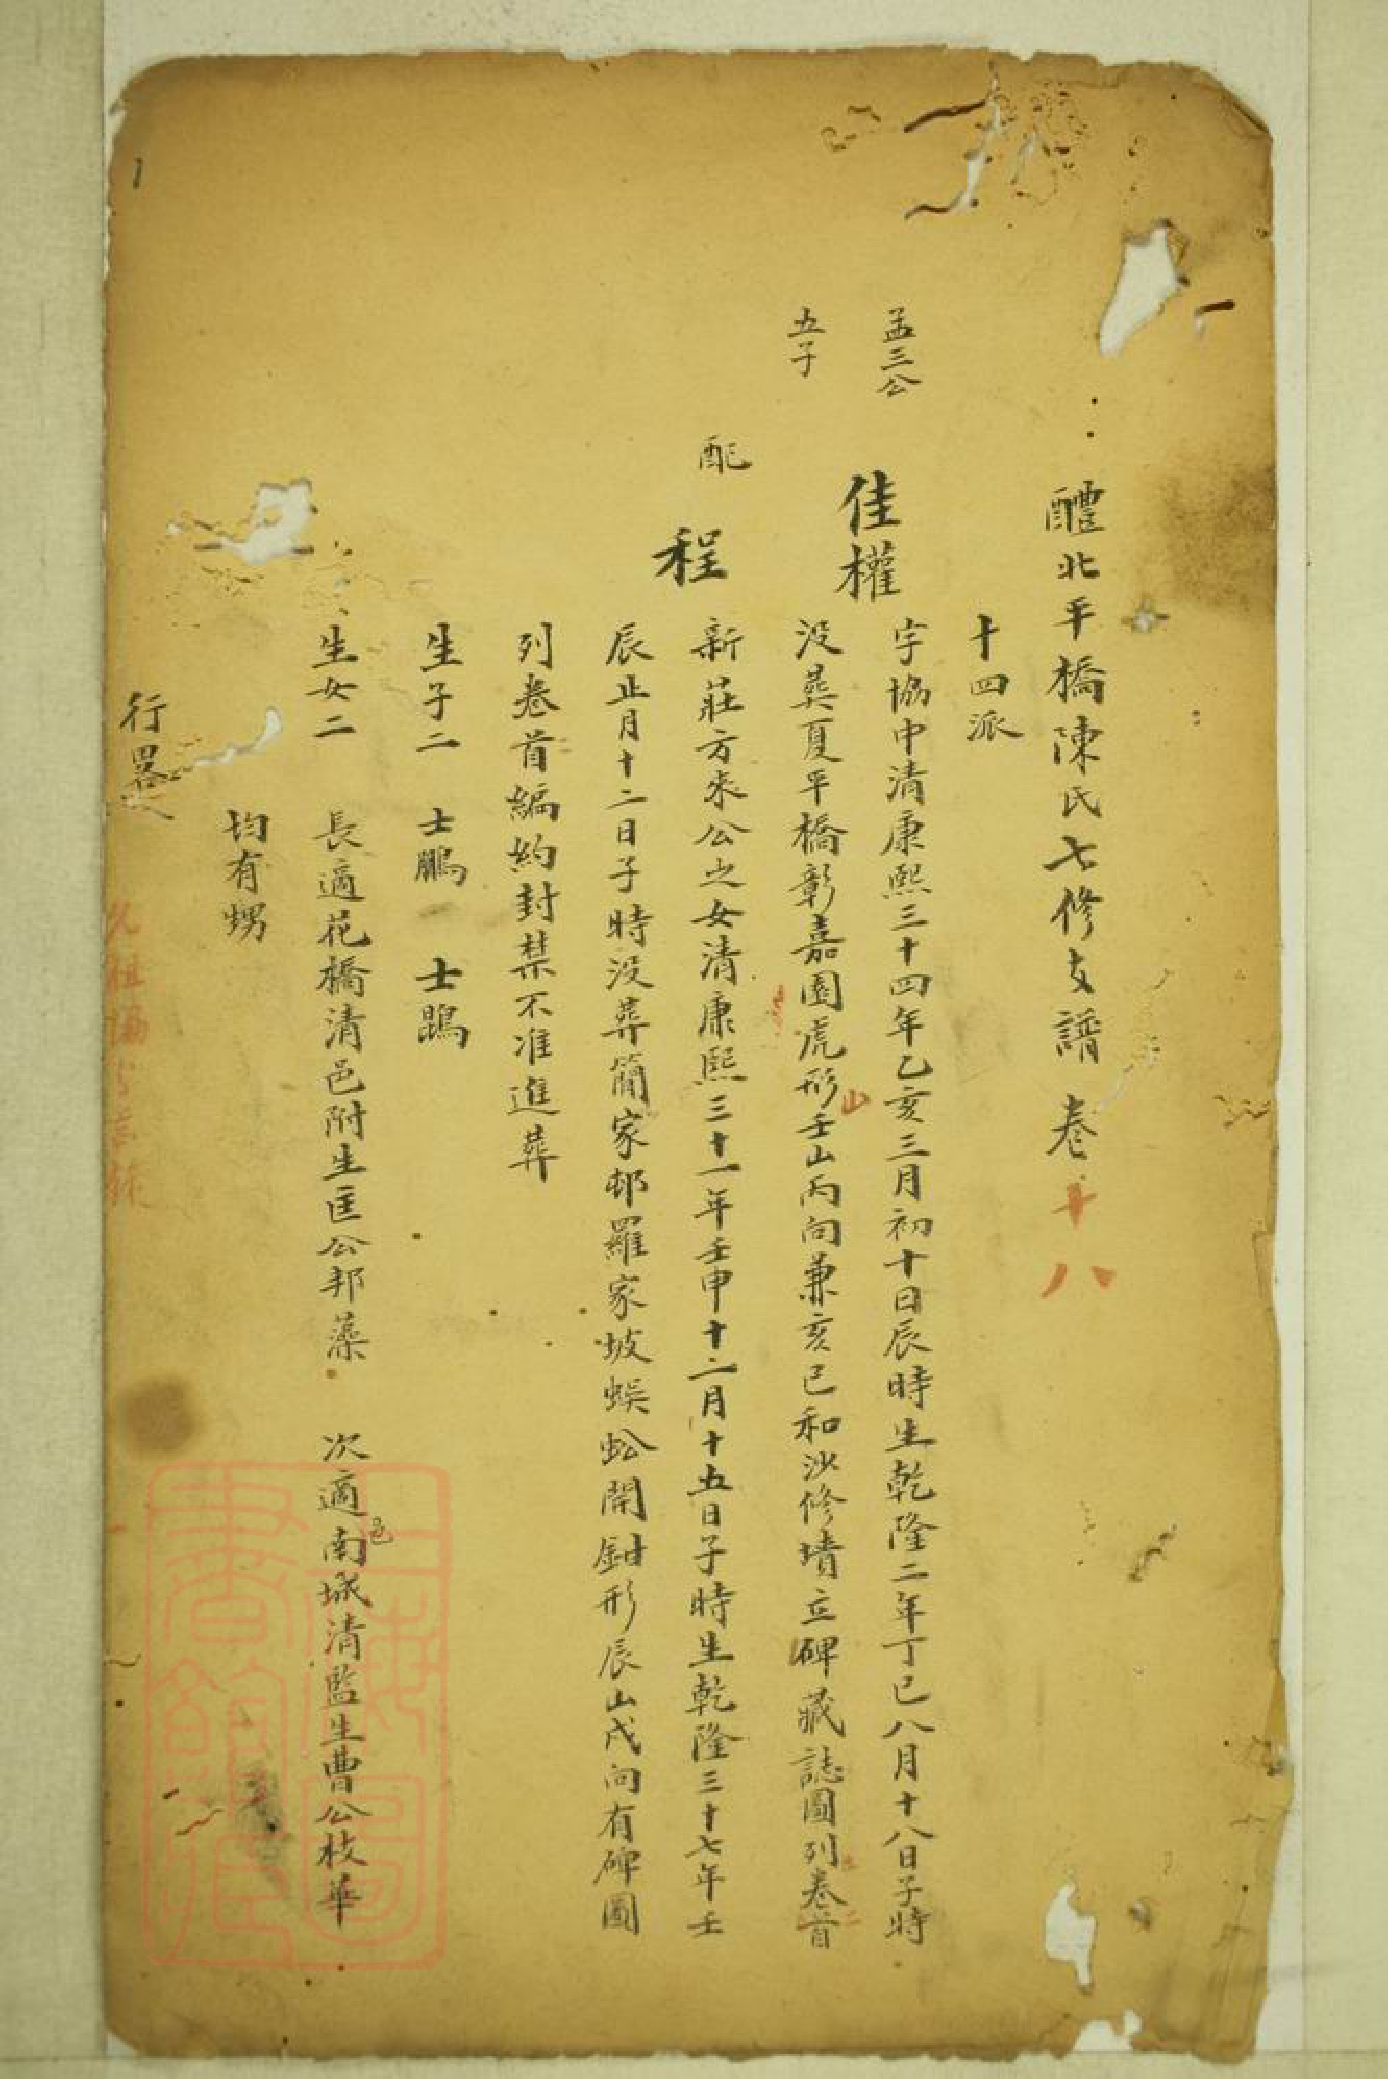 醴北平橋陳氏七修支譜 卷十八
十四派
孟三公
佳權
字協中清康熙三十四年乙亥三月初十日辰時生乾隆二年丁巳八月十八日子時
五子
没葬夏平橋彰嘉園虎形山壬山丙向兼亥巳和沙修墳立碑藏誌圖列卷首
配 程
新莊方來公之女清康熙三十一年壬申十二月十五日子時生乾隆三十七年壬
辰止月十二日子時没葬簡家邨羅家坡蜈蚣開鉗形辰山戌向有碑圖
列卷首編約封禁不准進葬
生子二 士鵬 士鵾
生女二 長適花橋清邑附生匡公邦藻 次適南城清監生曹公枝華
邑
均有甥
行畧
上海圖書館藏